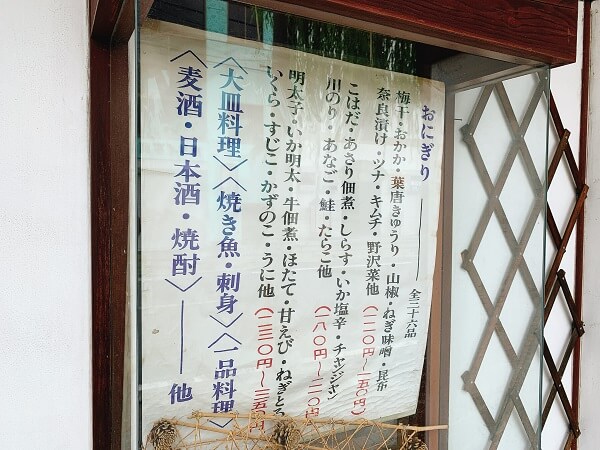 おにぎり――全三十六品
梅干・おかか・葉唐きゅうり・山椒・ねぎ味噌・昆布
奈良漬け・ツナ・キムチ・野沢菜他(一二〇円〜一五〇円)
こはだ・あさり佃煮・しらす・いか塩辛・チャンジャ
川のり・あなご・鮭・たらこ他(一八〇円〜二一〇円
明太子・いか明太・牛佃煮・ほたて・甘えび・ねぎとろ
いくら・すじこ・かずのこ・うに他(二三〇円〜三五〇
〈大皿料理〉〈焼き魚・刺身〉〈一品料理〉
〈麦酒・日本酒・焼酎〉――他